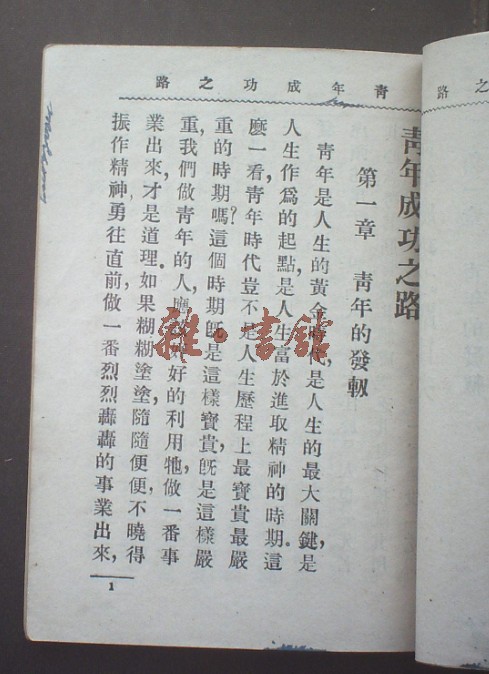 之路
靑年成功之路
靑年成功之路
第一章 靑年的發軔
靑年是人生的黃金時代,是人生的最大關鍵,是
人生作爲的起點,是人生富於進取精神的時期.這
麽一看靑年時代豈不是人生歷程上最寶貴最嚴
重的時期嗎?這個時期旣是這樣寶貴,旣是這樣嚴
重,我們做靑年的人,應該好好的利用牠,做一番事
業出來,才是道理.如果糊糊塗塗,隨隨便便,不曉得
振作精神,勇往直前,做一番烈烈轟轟的事業出來,
1
雜·書館